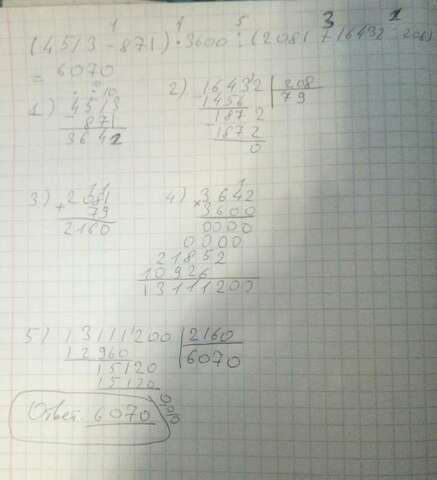 1 4 5 3 2
(4513 - 871) · 3600 : (2081 + 16432 : 208)
= 6070
1) 4513
- 871
3642
2) 16432 | 208
1456 79
1872
1872
0
3) 2081
+ 79
2160
4) 3642
× 3600
0000
0000
21852
10926
13111200
5) 13111200 | 2160
12960 6070
15120
15120
0
Ответ 6070